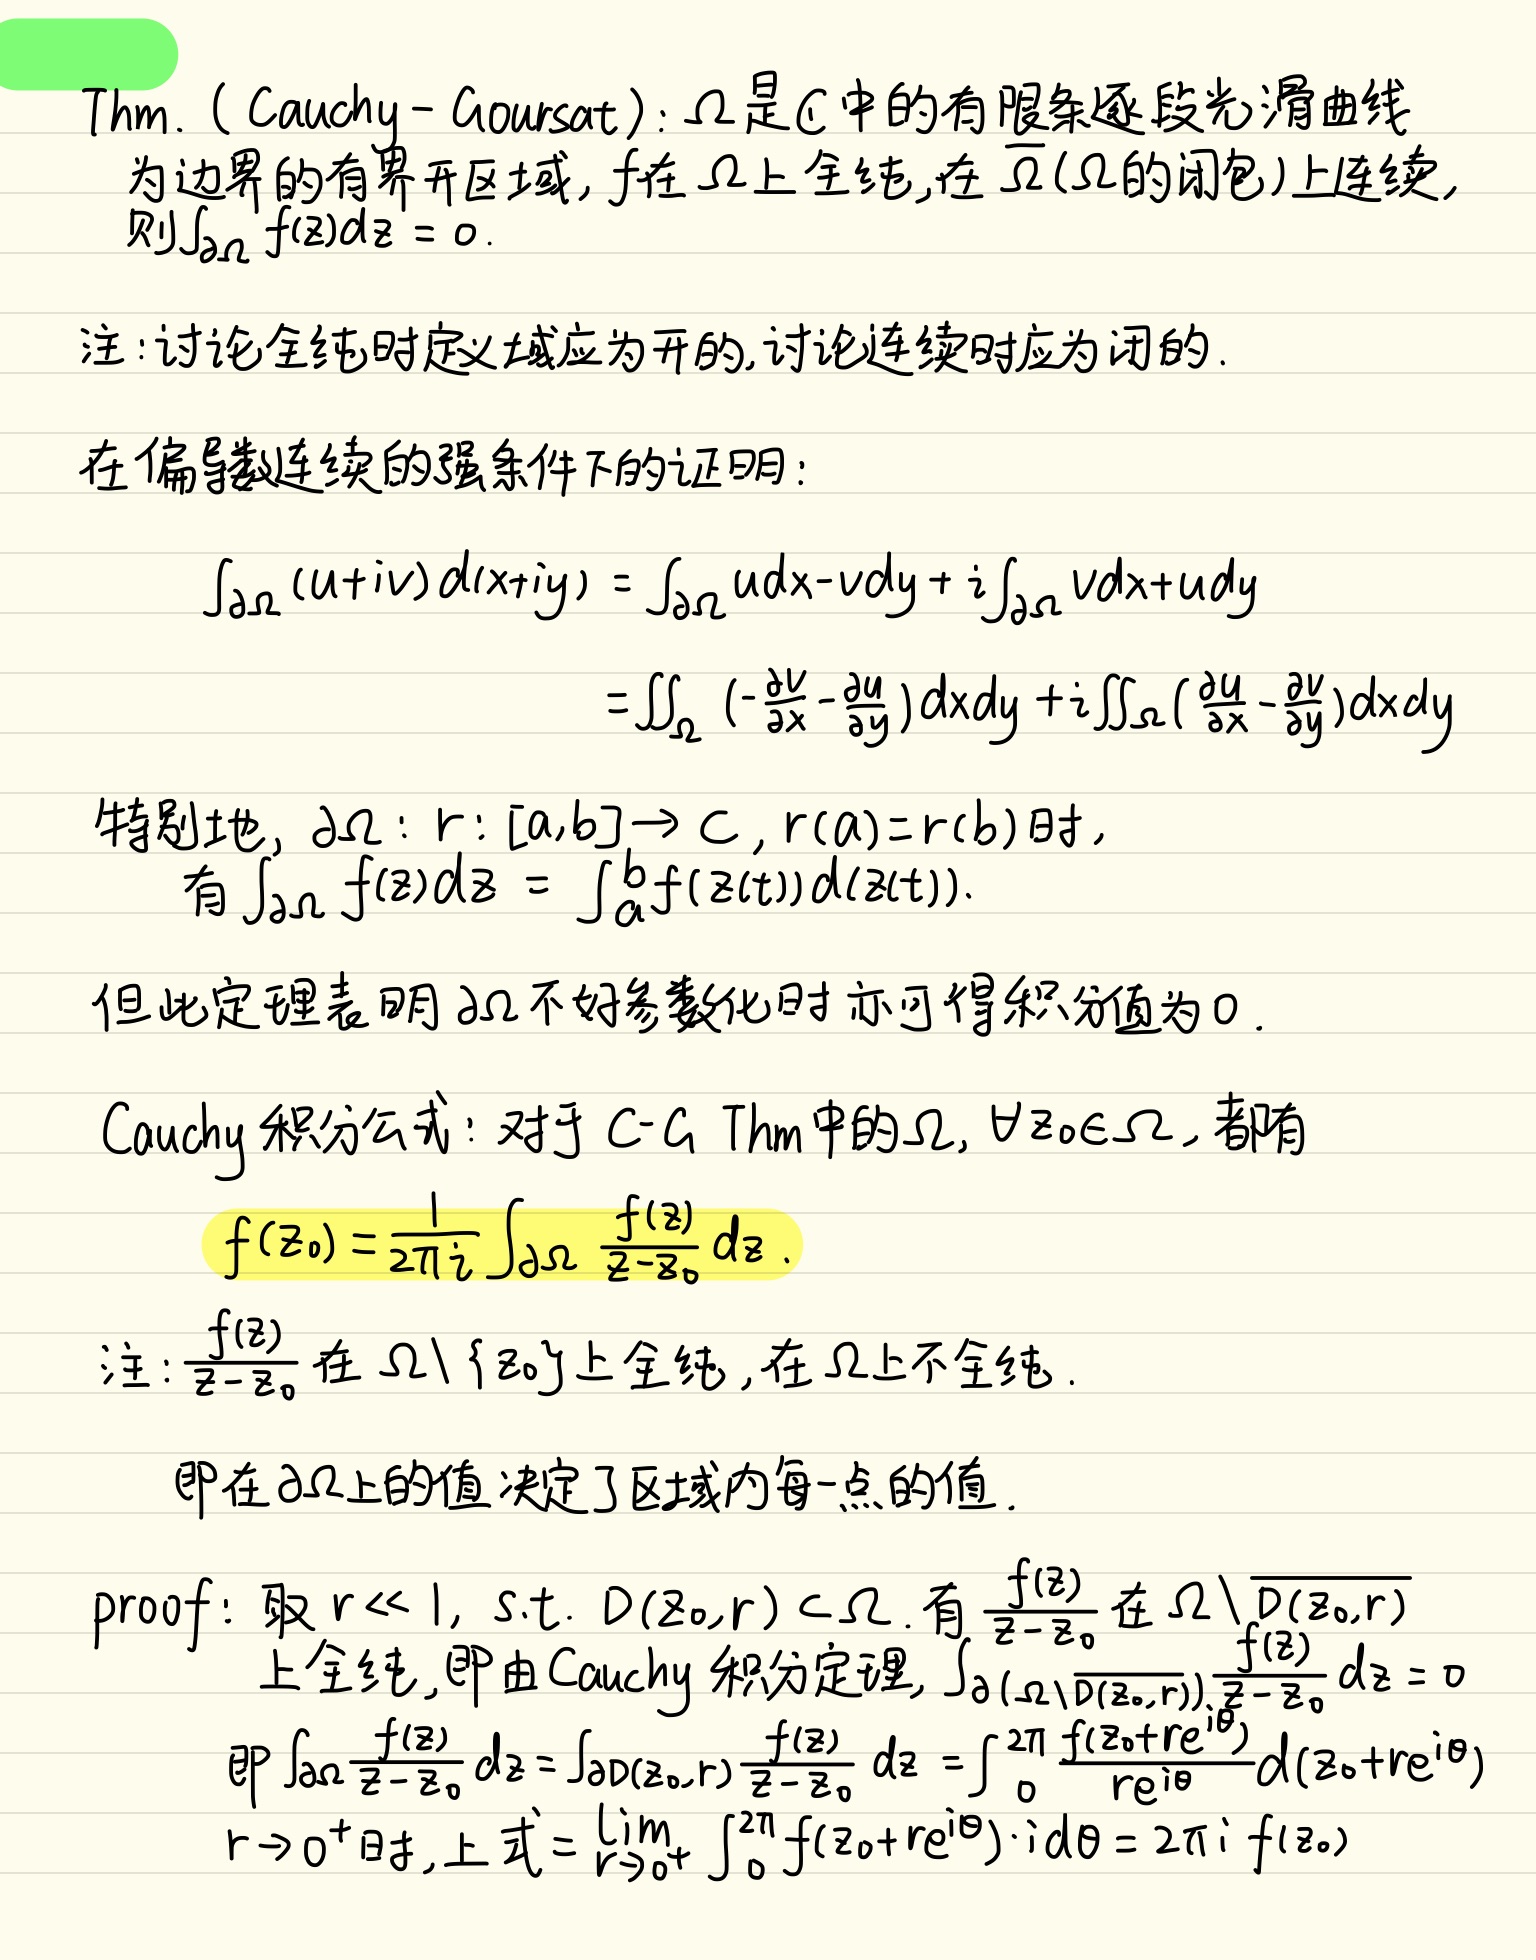 Thm. (Cauchy-Goursat): Ω是ℂ中的有限条逐段光滑曲线
为边界的有界开区域, f在Ω上全纯,在 Ω̅(Ω的闭包)上连续,
则∫_{∂Ω} f(z)dz = 0.
注:讨论全纯时定义域应为开的,讨论连续时应为闭的.
在偏导数连续的强条件下的证明:
∫_{∂Ω} (u+iv) d(x+iy) = ∫_{∂Ω} udx-vdy + i∫_{∂Ω} vdx+udy
= ∬_Ω (-∂v/∂x - ∂u/∂y) dxdy + i∬_Ω (∂u/∂x - ∂v/∂y) dxdy
特别地, ∂Ω: r: [a,b]→C, r(a)=r(b)时,
有∫_{∂Ω} f(z)dz = ∫_a^b f(z(t))d(z(t)).
但此定理表明∂Ω不好参数化时亦可得积分值为0.
Cauchy积分公式: 对于C-G Thm中的Ω, ∀z₀∈Ω, 都有
f(z₀) = 1/(2πi) ∫_{∂Ω} f(z)/(z-z₀) dz.
注: f(z)/(z-z₀) 在 Ω\{z₀}上全纯,在Ω上不全纯.
即在∂Ω上的值决定了区域内每一点的值.
proof: 取 r≪1, s.t. D(z₀,r)⊂Ω.有 f(z)/(z-z₀) 在 Ω\\overline{D(z₀,r)}
上全纯,即由Cauchy积分定理, ∫_{∂(Ω\\overline{D(z₀,r)})} f(z)/(z-z₀) dz = 0
即∫_{∂Ω} f(z)/(z-z₀) dz = ∫_{∂D(z₀,r)} f(z)/(z-z₀) dz = ∫_0^{2π} f(z₀+re^{iθ})/(re^{iθ}) d(z₀+re^{iθ})
r→0⁺时,上式= lim_{r→0⁺} ∫_0^{2π} f(z₀+re^{iθ})·idθ = 2πi f(z₀)